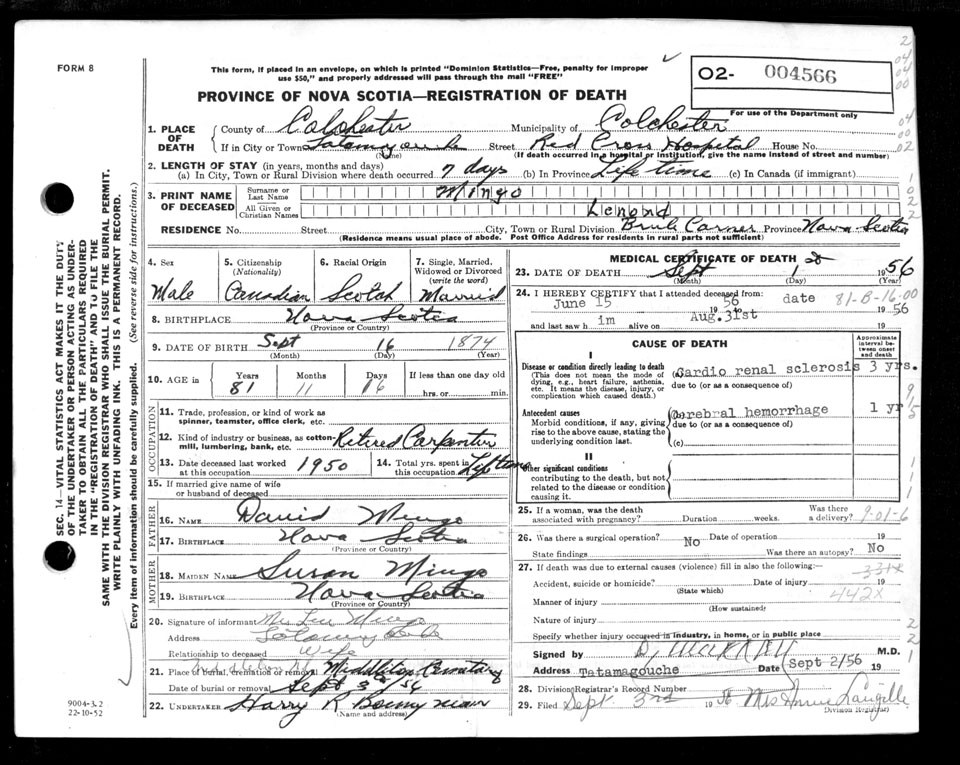 FORM 8
This form, if placed in an envelope, on which is printed "Dominion Statistics—Free, penalty for improper
use $50," and properly addressed will pass through the mail "FREE"
O2- 004566
For use of the Department only
PROVINCE OF NOVA SCOTIA—REGISTRATION OF DEATH
1. PLACE OF DEATH
County of Colchester Municipality of Colchester
If in City or Town Tatamagouche Street Red Cross Hospital House No.
(Name) (If death occurred in a hospital or institution, give the name instead of street and number)
2. LENGTH OF STAY (in years, months and days)
(a) In City, Town or Rural Division where death occurred 7 days (b) In Province Life time (c) In Canada (if immigrant)
3. PRINT NAME OF DECEASED
Surname or Last Name Mingo
All Given or Christian Names
RESIDENCE No. Street City, Town or Rural Division Brule Corner Province Nova Scotia
(Residence means usual place of abode. Post Office Address for residents in rural parts not sufficient)
4. Sex Male
5. Citizenship (Nationality) Canadian
6. Racial Origin Scotch
7. Single, Married, Widowed or Divorced (write the word) Married
8. BIRTHPLACE Nova Scotia
(Province or Country)
9. DATE OF BIRTH Sept 16 1874
(Month) (Day) (Year)
10. AGE in Years 81 Months 11 Days 16 If less than one day old
hrs. or min.
OCCUPATION
11. Trade, profession, or kind of work as
spinner, teamster, office clerk, etc.
12. Kind of industry or business, as cotton-
mill, lumbering, bank, etc. Retired Carpenter
13. Date deceased last worked
at this occupation 1950
14. Total yrs. spent in
this occupation Lifetime
15. If married give name of wife
or husband of deceased
FATHER
16. NAME David Mingo
17. BIRTHPLACE Nova Scotia
(Province or Country)
MOTHER
18. MAIDEN NAME Susan Mingo
19. BIRTHPLACE Nova Scotia
(Province or Country)
20. Signature of informant Mrs Mingo
Address
Relationship to deceased Wife
21. Place of burial, cremation or removal Cemetary
Date of burial or removal Sept 3rd 56
22. UNDERTAKER Harry R
(Name and address)
MEDICAL CERTIFICATE OF DEATH
23. DATE OF DEATH Sept 1 1956
(Month) (Day) (Year)
24. I HEREBY CERTIFY that I attended deceased from:
June 15 1956 to date 1956
81-B-16-00
and last saw him alive on Aug. 31st 19
CAUSE OF DEATH
Approximate interval between onset and death
I
Disease or condition directly leading to death
(This does not mean the mode of
dying, e.g., heart failure, asthenia,
etc. It means the disease, injury, or
complication which caused death.)
Cardio renal sclerosis 3 yrs.
due to (or as a consequence of)
Antecedent causes
Morbid conditions, if any, giving
rise to the above cause, stating the
underlying condition last.
Cerebral hemorrhage 1 yr
due to (or as a consequence of)
(c)
II
Other significant conditions
contributing to the death, but not
related to the disease or condition
causing it.
25. If a woman, was the death
associated with pregnancy? Duration weeks. Was there
a delivery? 9-01-6
26. Was there a surgical operation? No Date of operation 19
State findings Was there an autopsy? No
27. If death was due to external causes (violence) fill in also the following:—
Accident, suicide or homicide? Date of injury 19
(State which)
331X
442X
Manner of injury
(How sustained)
Nature of injury
Specify whether injury occured in industry, in home, or in public place
Signed by M.D.
Address Tatamagouche Date Sept 2/56 19
28. Division Registrar's Record Number
29. Filed Sept 3rd 1956 Mrs Annie Langille
Division Registrar
SEC. 14—VITAL STATISTICS ACT MAKES IT THE DUTY
OF THE UNDERTAKER OR PERSON ACTING AS UNDER-
TAKER TO OBTAIN ALL THE PARTICULARS REQUIRED
IN THE "REGISTRATION OF DEATH" AND TO FILE THE
SAME WITH THE DIVISION REGISTRAR WHO SHALL ISSUE THE BURIAL PERMIT.
WRITE PLAINLY WITH UNFADING INK. THIS IS A PERMANENT RECORD.
Every item of information should be carefully supplied. (See reverse side for instructions.)
9004-3.2
22-10-52